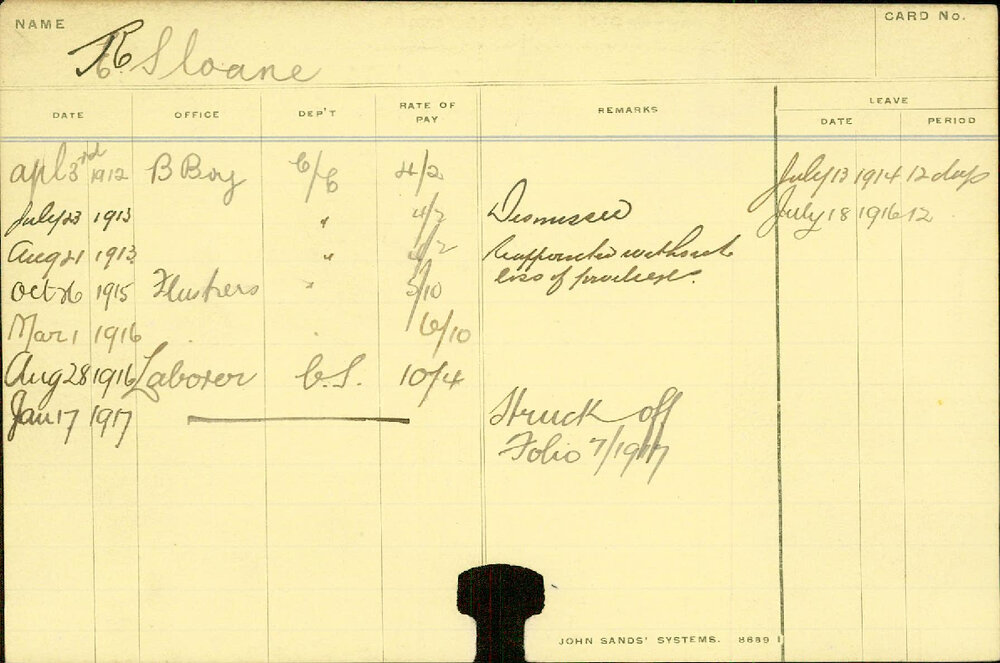 NAME
CARD No.
R Sloane
DATE OFFICE DEP'T RATE OF PAY REMARKS LEAVE
DATE PERIOD
Apl 3rd 1912 B Boy C/C 4/2 July 13 1914 12 days
July 23 1913 " 4/2 Dismissed July 18 1916 12
Aug 21 1913 " 4/2 Reappointed without
loss of privileges.
Oct 26 1915 " 5/10
Mar 1 1916 . . 6/10
Aug 28 1916 Laborer C.S. 10/4
Jan 17 1917 Struck off
Folio 7/1917
JOHN SANDS' SYSTEMS. 8689